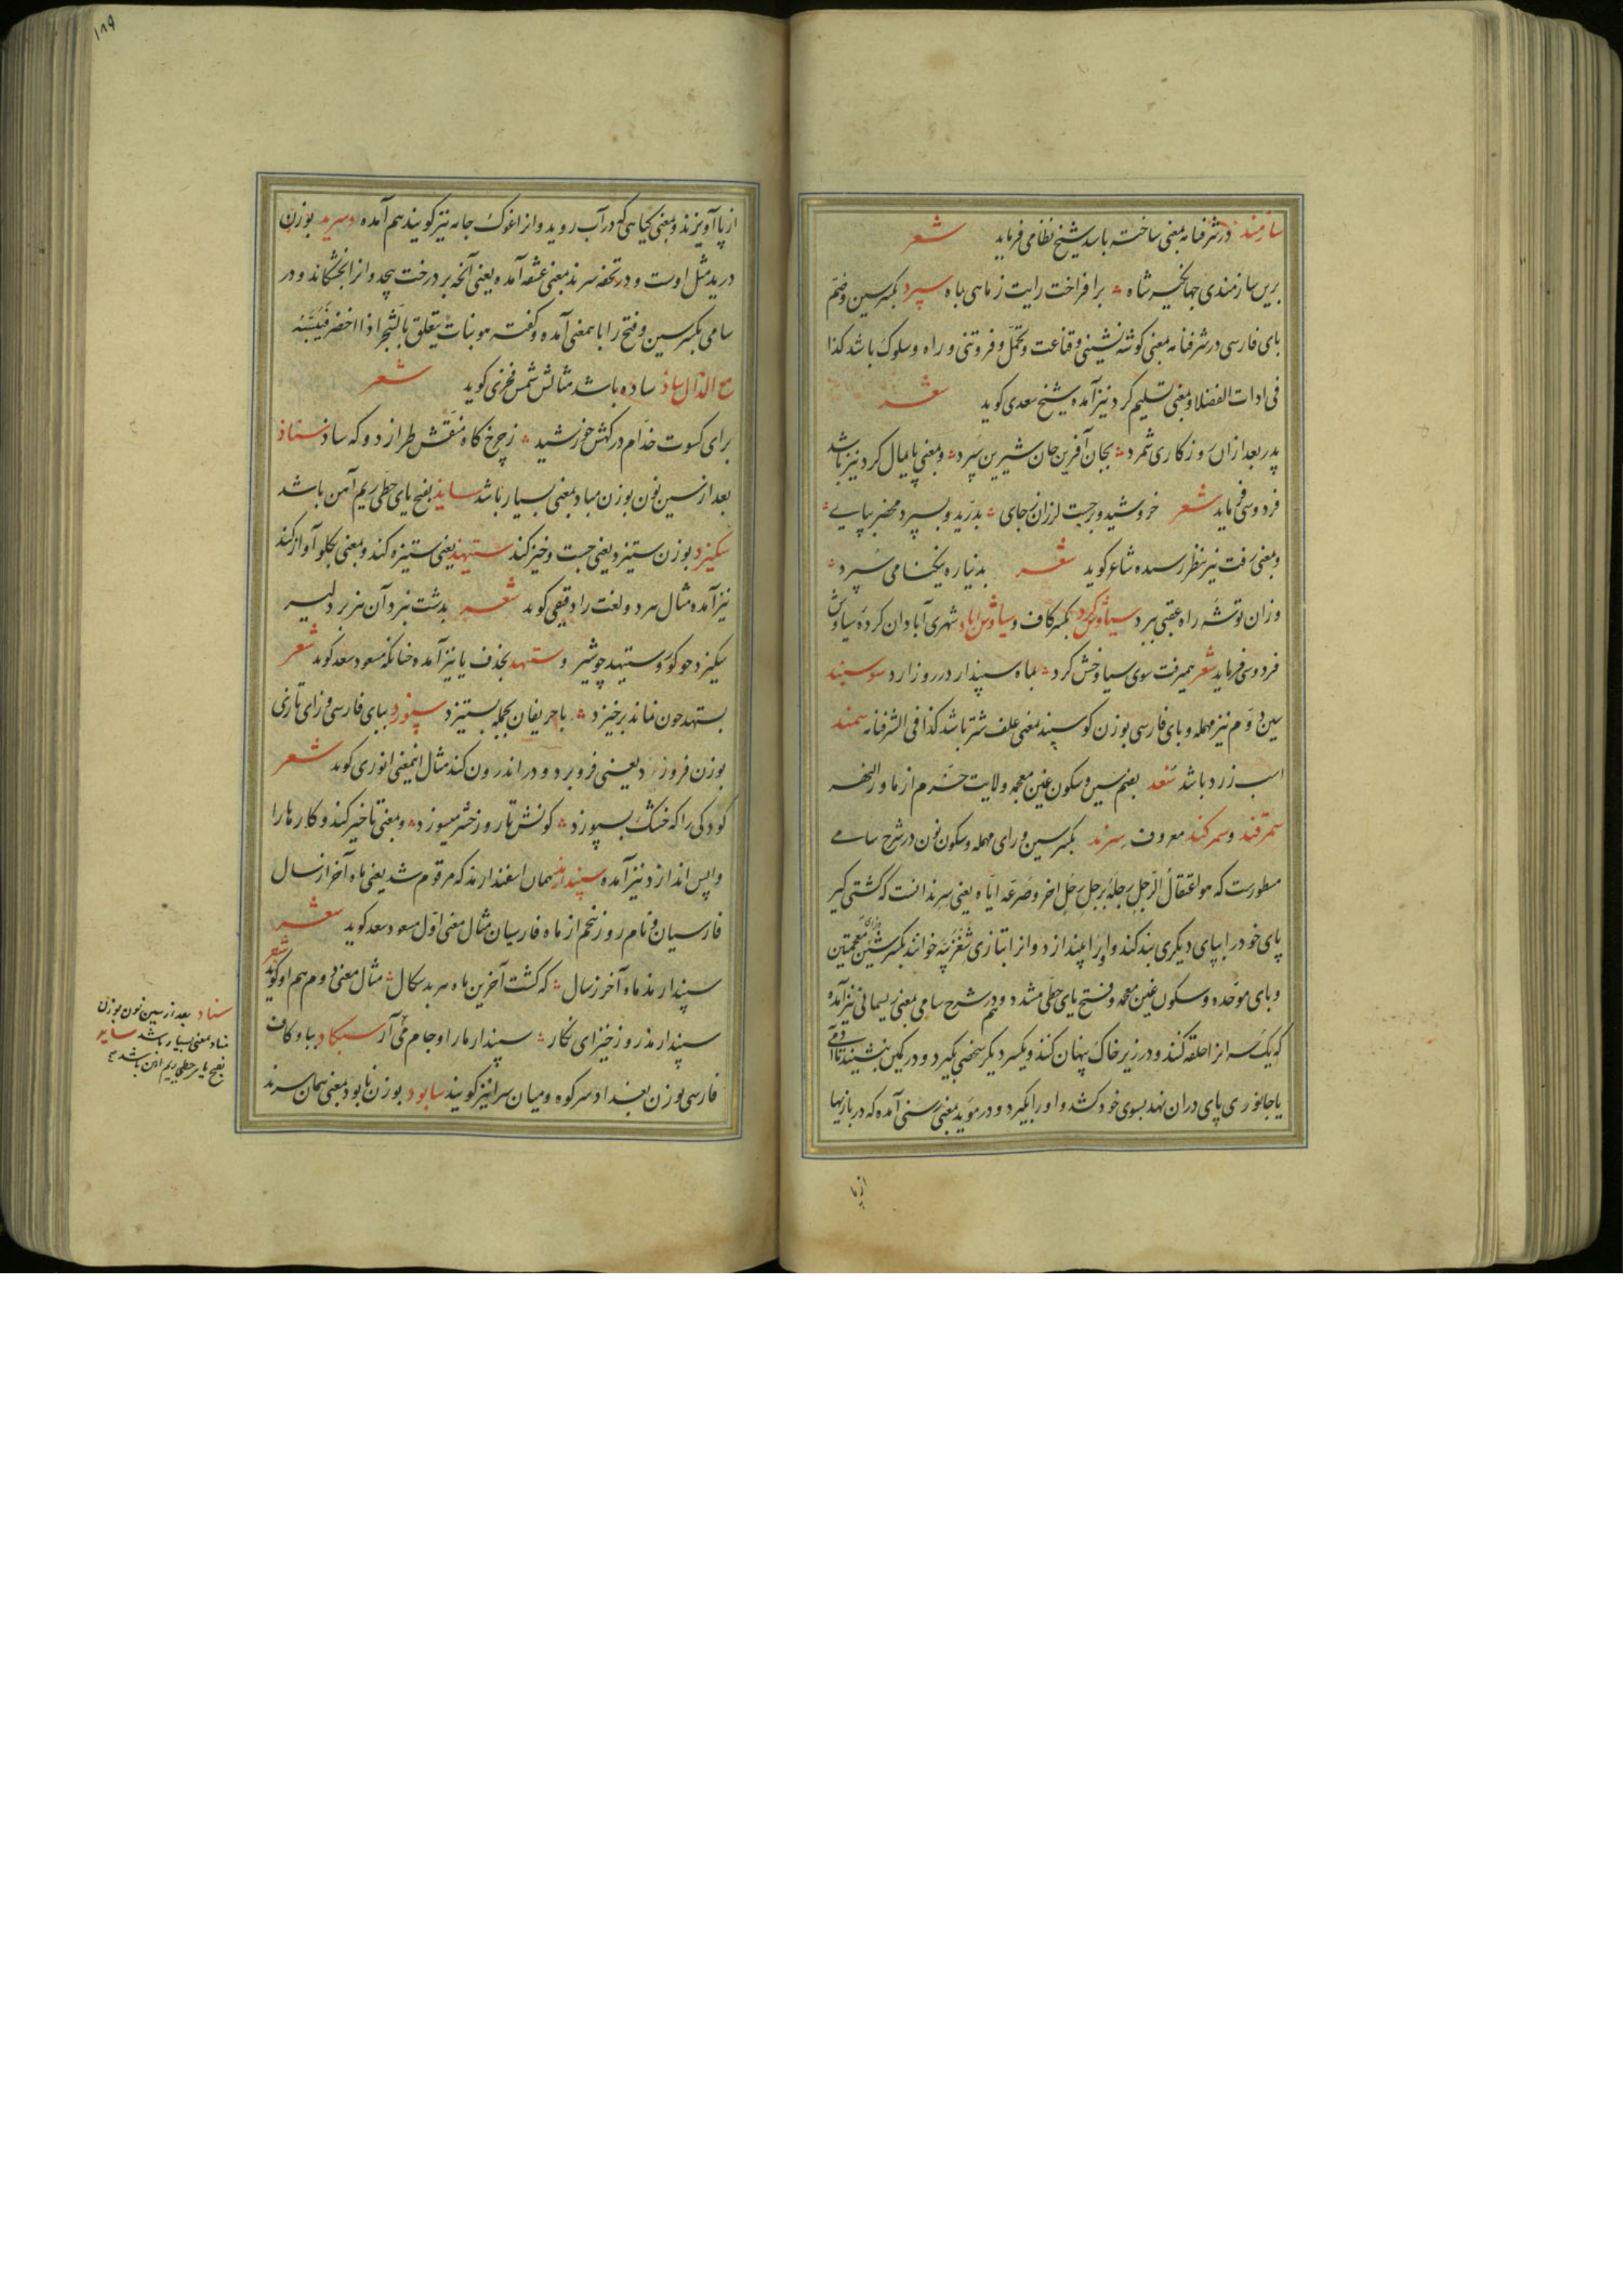 سازمند در شرفنامه بمعنی ساخته باشد شیخ نظامی فرماید شعر
برین سازمندی جهانگیر شاه برافراخت رایت ز ماهی بماه سپرد بکسر سین و ضم
بای فارسی در شرفنامه بمعنی گوشه نشینی و قناعت و تحمل و فروتنی و راه و سلوک باشد کذا
فی ادات الفضلا و بمعنی تسلیم کرد نیز آمده شیخ سعدی گوید شعر
پدر بعد ازان روزگاری شمرد بجان آفرین جان شیرین سپرد و بمعنی پایمال کرد نیز باشد
فردوسی فرماید شعر خروشید و برجست لرزان ز جای بدرید و بسپرد محضر بپای
و بمعنی رفت نیز بنظر رسیده شاعر گوید شعر بدنیا ره نیکنامی سپرد
وزان توشه راه عقبی ببرد سیاوش کرد بکسر کاف و سیاوش اباد شهری آبادان کرده سیاوش
فردوسی فرماید شعر همیرفت سوی سیاوخش کرد بماه سپندار در روز ارد سوسپند
سین دوم نیز مهمله و بای فارسی بوزن گوسپند بمعنی علف شتر باشد کذا فی الشرفنامه سمند
اسب زرد باشد سغد بضم سین و سکون غین معجمه ولایت خرم از ماورالنهر
سمرقند و سمرکند معروف سرند بکسر سین و رای مهمله و سکون نون در شرح سامی
مسطورست که هو اعتقال الرجل رجله برجل رجل اخر و صرعه ایاه یعنی سرند انست که کشتی گیر
پای خود را بپای دیگری بند کند و او را بیندازد و انرا بتازی شغزبیه خوانند بکسر شین و زای معجمتین
و بای موحده و سکون غین معجمه و فتح یای حطی مشدد و هم در شرح سامی بمعنی ریسمانی نیز آمده
که یک سر انرا حلقه کنند و در زیر خاک پنهان کنند و یکسر دیگر شخصی بگیرد و در کمین بنشیند تا آدمی
یا جانوری پای دران نهد بسوی خود کشد و او را بگیرد و در موید بمعنی رسنی آمده که در بازیها
از پا
۱۸۹
از پا آویزند و بمعنی گیاهی که در آب روید و انرا غوک جامه نیز گویند هم آمده و سرید بوزن
درید مثل اوست و در تحفه سرند بمعنی عشقه آمده یعنی آنچه بر درخت پیچد و انرا بخشکاند و در
سامی بکسر سین و فتح را باینمعنی آمده و گفته هو نبات یتعلق بالشجر اذا اخضر فییبسه
مع الذال ساذ ساده باشد مثالش شمس فخری گوید شعر
برای کسوت خدام درگهش خورشید ز چرخ گاه منقش طرازد و گه ساد سناذ
بعد از سین نون بوزن مباد بمعنی بسیار باشد سایذ بفتح یای حطی ریم آهن باشد
سکیزد بوزن ستیزد یعنی جست و خیز کند ستیهد یعنی ستیزه کند و بمعنی بگلو آواز کند
نیز آمده مثال هر دو لغت را دقیقی گوید شعر بدشت نبرد آن هزبر دلیر
سکیزد چو گور و ستیهد چو شیر و ستهد بحذف یا نیز آمده چنانکه مسعود سعد گوید شعر
بستهد چون نماند برخیزد با حریفان بجمله بستیزد سپوزد ببای فارسی و زای تازی
بوزن فروزد یعنی فرو برد و در اندرون کند مثال اینمعنی انوری گوید شعر
کودکی را که خشک بسپوزد کونش تا روز حشر میسوزد و بمعنی تاخیر کند و کارها را
واپس اندازد نیز آمده سپندارمذ همان اسفندارمذ که مرقوم شد یعنی ماه آخر از سال
فارسیان و نام روز پنجم از ماه فارسیان مثال معنی اول مسعود سعد گوید شعر
سپندارمذ ماه آخر ز سال که گشت آخرین ماه هر بدسکال مثال معنی دوم هم او گوید شعر
سپندارمذ روز خیز ای نگار سپندار ما را و جام می آر سبکاد ببا و کاف
فارسی بوزن بغداد سر کوه و میان سر را نیز گویند سابود بوزن نابود بمعنی همان سرند
سناد بعد از سین نون بوزن
مناد بمعنی بسیار باشد ساید
بفتح یای حطی ریم اهن باشد